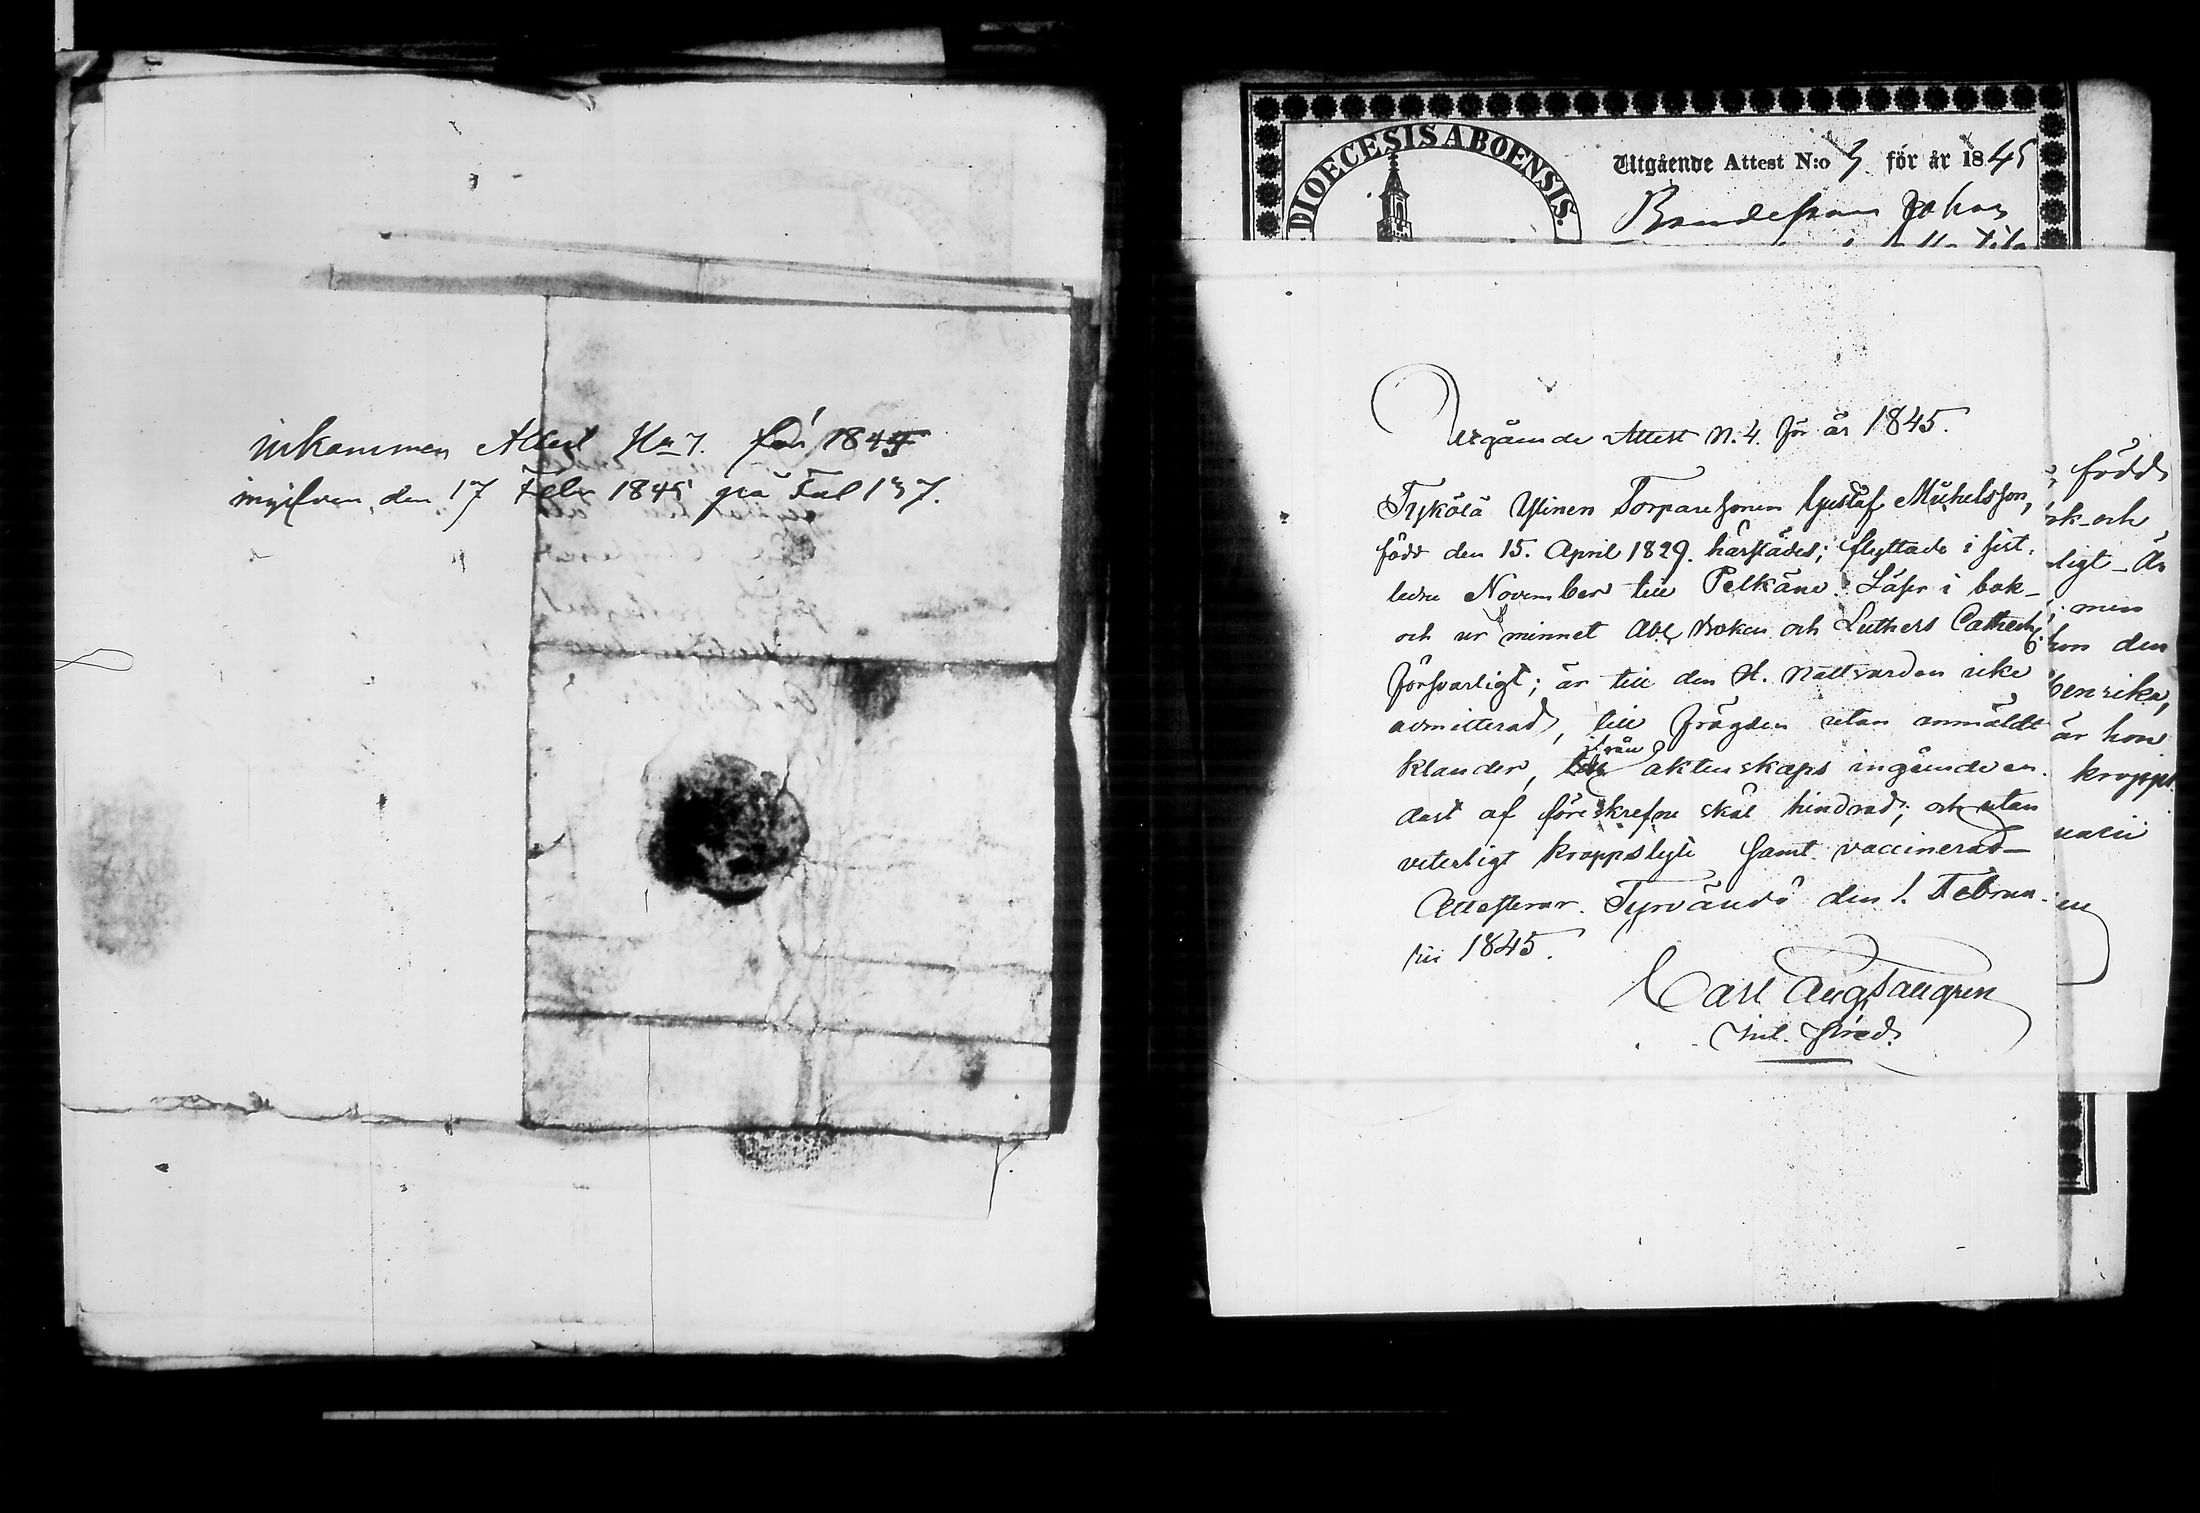 inkommen Attest No 7. för 1845
ingifven den 17 Febr 1845 på Fol 137.
DIOECESIS ABOENSIS.
Utgående Attest N:o 3 för år 1845
Bondesonen Johan
Utgående Attest N. 4. för år 1845.
Tykölä Ylinen Torparesonen Gustaf Michelsson,
född den 15. April 1829. härstädes; flyttade i sist-
ledne November till Pelkäne. Läser i bok-
och ur minnet Abc Boken och Luthers Cateches
försvarligt; är till den H. Nattvarden icke
admitterad, till frägden utan anmäldt
klander, ifrån äktenskaps ingående en-
dast af föreskrefne skäl hindrad; och utan
veterligt kroppslyte samt vaccinerad—
Attesterar. Tyrvändö den 1. Februa-
rii 1845.
Carl Aug Tallgren
född
bok- och
ligt - Är
; men
hon den
henrika,
är hon
kropps
uarii
en